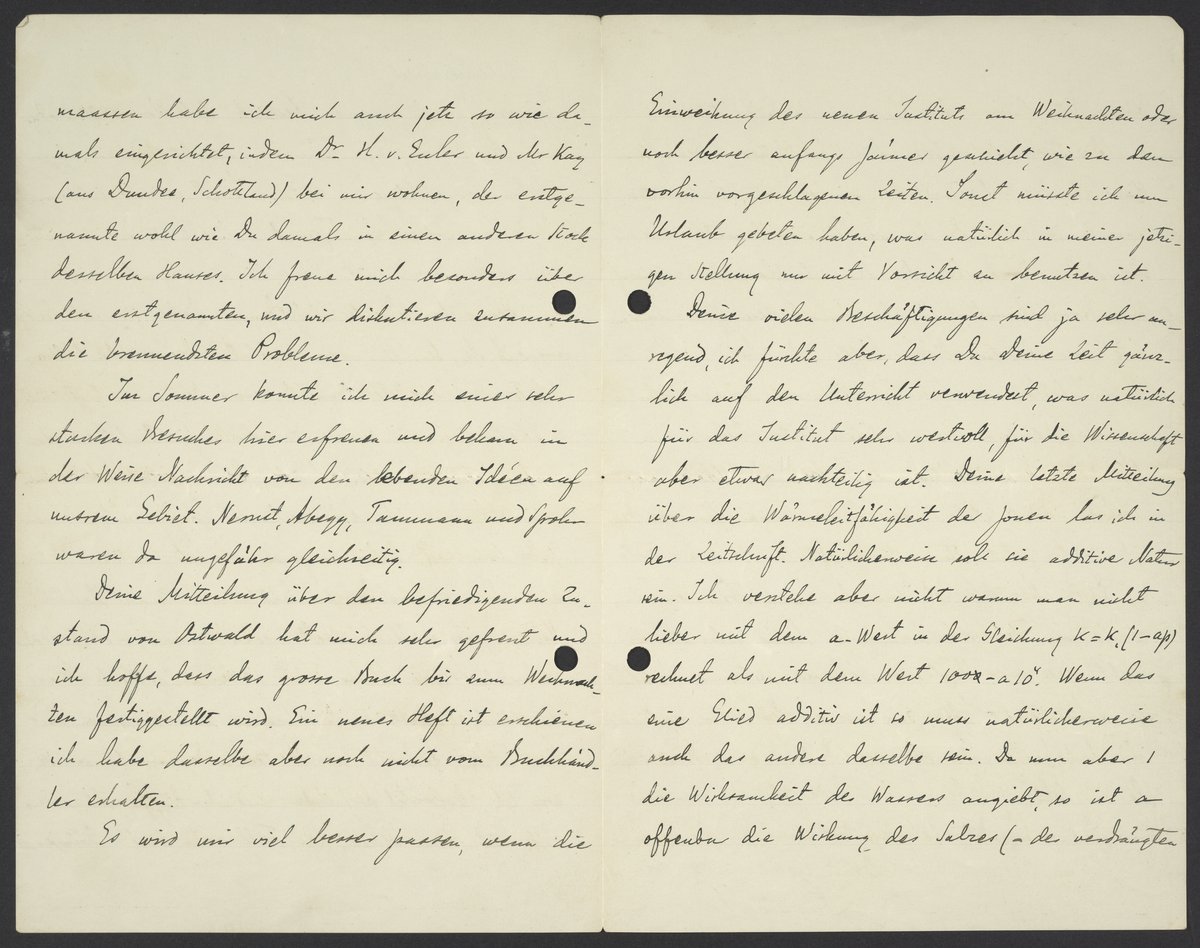 maassen habe ich mich auch jetz so wie da-
mals eingerichtet, indem Dr H. v. Euler und Mr Kay
(aus Dundee, Schottland) bei mir wohnen, der erstge-
nannte wohl wie Du damals in einen anderen Stock
desselben Hauses. Ich freue mich besonders über
den erstgenannten, und wir diskutieren zusammen
die brennendsten Probleme.
Im Sommer konnte ich mich eines sehr
starken Besuches hier erfreuen und bekam in
der Weise Nachricht von den lebenden Idéen auf
unsrem Gebiet. Nernst, Abegg, Tammann und Spohr
waren da ungefähr gleichzeitig.
Deine Mitteilung über den befriedigenden Zu-
stand von Ostwald hat mich sehr gefreut und
ich hoffe, dass das grosse Buch bis zum Weihnach-
ten fertiggestellt wird. Ein neues Heft ist erschienen
ich habe dasselbe aber noch nicht vom Buchhänd-
ler erhalten.
Es wird mir viel besser passen, wenn die
Einweihung des neuen Instituts um Weihnachten oder
noch besser anfangs Jänner geschieht, wie zu dem
vorhin vorgeschlagenen Zeiten. Sonst müsste ich um
Urlaub gebeten haben, was natürlich in meiner jetzi-
gen Stellung nur mit Vorsicht zu benutzen ist.
Deine vielen Beschäftigungen sind ja sehr an-
regend, ich fürchte aber, dass Du Deine Zeit gänz-
lich auf den Unterricht verwendest, was natürlich
für das Institut sehr wertvoll, für die Wissenschaft
aber etwas nachteilig ist. Deine letzte Mitteilung
über die Wärmeleitfähigkeit der Jonen las ich in
der Zeitschrift. Natürlicherweise soll sie additive Natur
sein. Ich verstehe aber nicht warum man nicht
lieber mit dem a-Wert in der Gleichung K=K,(1-ap)
rechnet als mit dem Wert Wenn das
eine Glied additiv ist so muss natürlicherweise
auch das andere dasselbe sein. Da nun aber 1
die Wirksamkeit des Wassers angiebt, so ist a
offenbar die Wirkung des Salzes (- der verdrängten